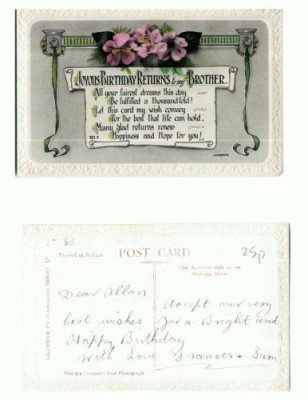 JOYOUS BIRTHDAY RETURNS to my BROTHER.
All your fairest dreams this day
Be fulfilled a thousand-fold!
Let this card my wish convey
for the best that life can hold,
Many glad returns renew
Happiness and Hope for you!
POST CARD
25p
Printed in Britain
The Address only to be
Written Here
Dear Allan
Accept our very
best wishes for a Bright and
Happy Birthday
With Love Frances + Sam